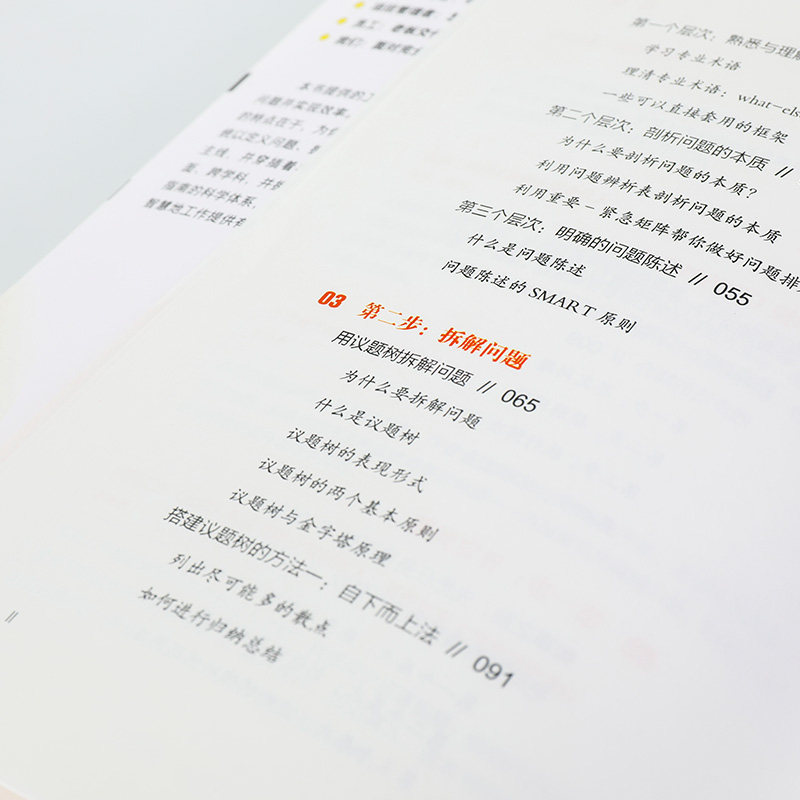 员工：老板交
我们：面对
本书提供的
问题并实现故事
的特点在于，为
统以定义问题、
主线，并穿插着
面、跨学科，并
指南的科学体系
智慧地工作提供有
第一个层次：熟悉与理解
学习专业术语
理清专业术语：what-els
一些可以直接套用的框架
第二个层次：剖析问题的本质 //
为什么要剖析问题的本质？
利用问题辨析表剖析问题的本质
利用重要－紧急矩阵帮你做好问题排
第三个层次：明确的问题陈述 // 055
什么是问题陈述
问题陈述的 SMART 原则
03 第二步：拆解问题
用议题树拆解问题 // 065
为什么要拆解问题
什么是议题树
议题树的表现形式
议题树的两个基本原则
议题树与金字塔原理
搭建议题树的方法一：自下而上法 // 091
列出尽可能多的散点
如何进行归纳总结
//